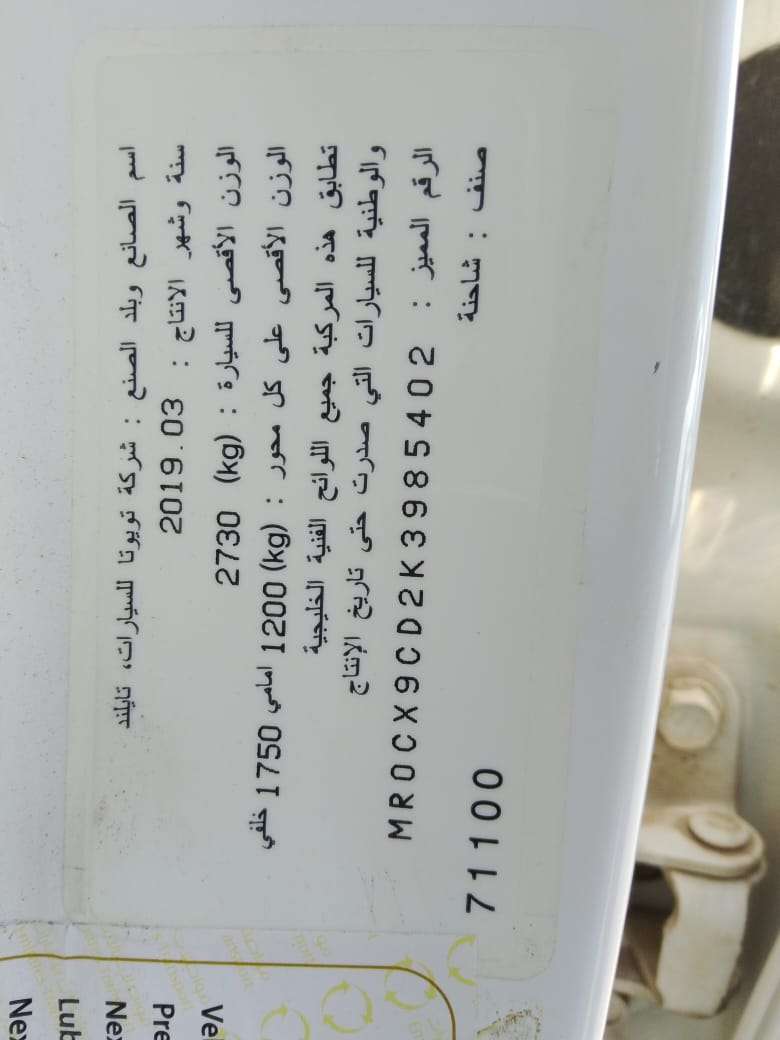 اسم الصانع وبلد الصنع : شركة تويوتا للسيارات، تايلند
سنة وشهر الانتاج : 2019.03
الوزن الأقصى للسيارة : (kg) 2730
الوزن الأقصى على كل محور : (kg) 1200 امامي 1750 خلفي
تطابق هذه المركبة جميع اللوائح الفنية الخليجية
والوطنية للسيارات التي صدرت حتى تاريخ الإنتاج
الرقم المميز : MR0CX9CD2K3985402
صنف : شاحنة
71100
Ve
Pre
Ne
Lub
Ne